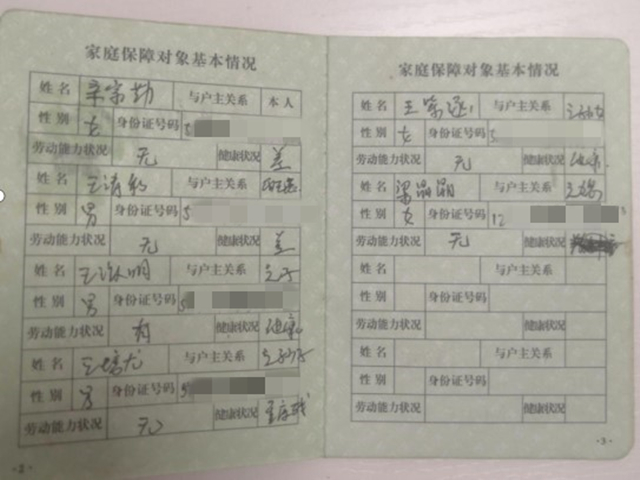 家庭保障对象基本情况
姓名 与户主关系 本人
性别 女 身份证号码 5
劳动能力状况 无 健康状况 差
姓名 王 与户主关系
性别 男 身份证号码 5
劳动能力状况 无 健康状况 差
姓名 王 明 与户主关系
性别 男 身份证号码 5
劳动能力状况 有 健康状况 健康
姓名 王 与户主关系
性别 男 身份证号码 5
劳动能力状况 无 健康状况
·2·
家庭保障对象基本情况
姓名 王 与户主关系
性别 女 身份证号码 5
劳动能力状况 无 健康状况 健康
姓名 梁晶晶 与户主关系
性别 女 身份证号码 12
劳动能力状况 无 健康状况
姓名 与户主关系
性别 身份证号码
劳动能力状况 健康状况
姓名 与户主关系
性别 身份证号码
劳动能力状况 健康状况
·3·